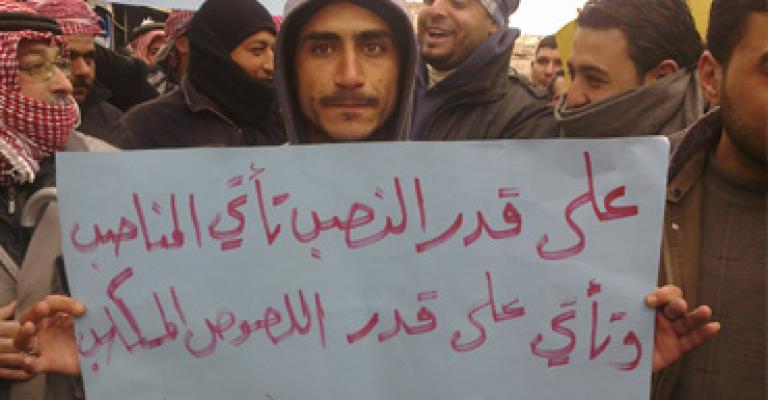 على قدر النصب تأتي المناصب
وتأتي على قدر اللصوص المكاسب